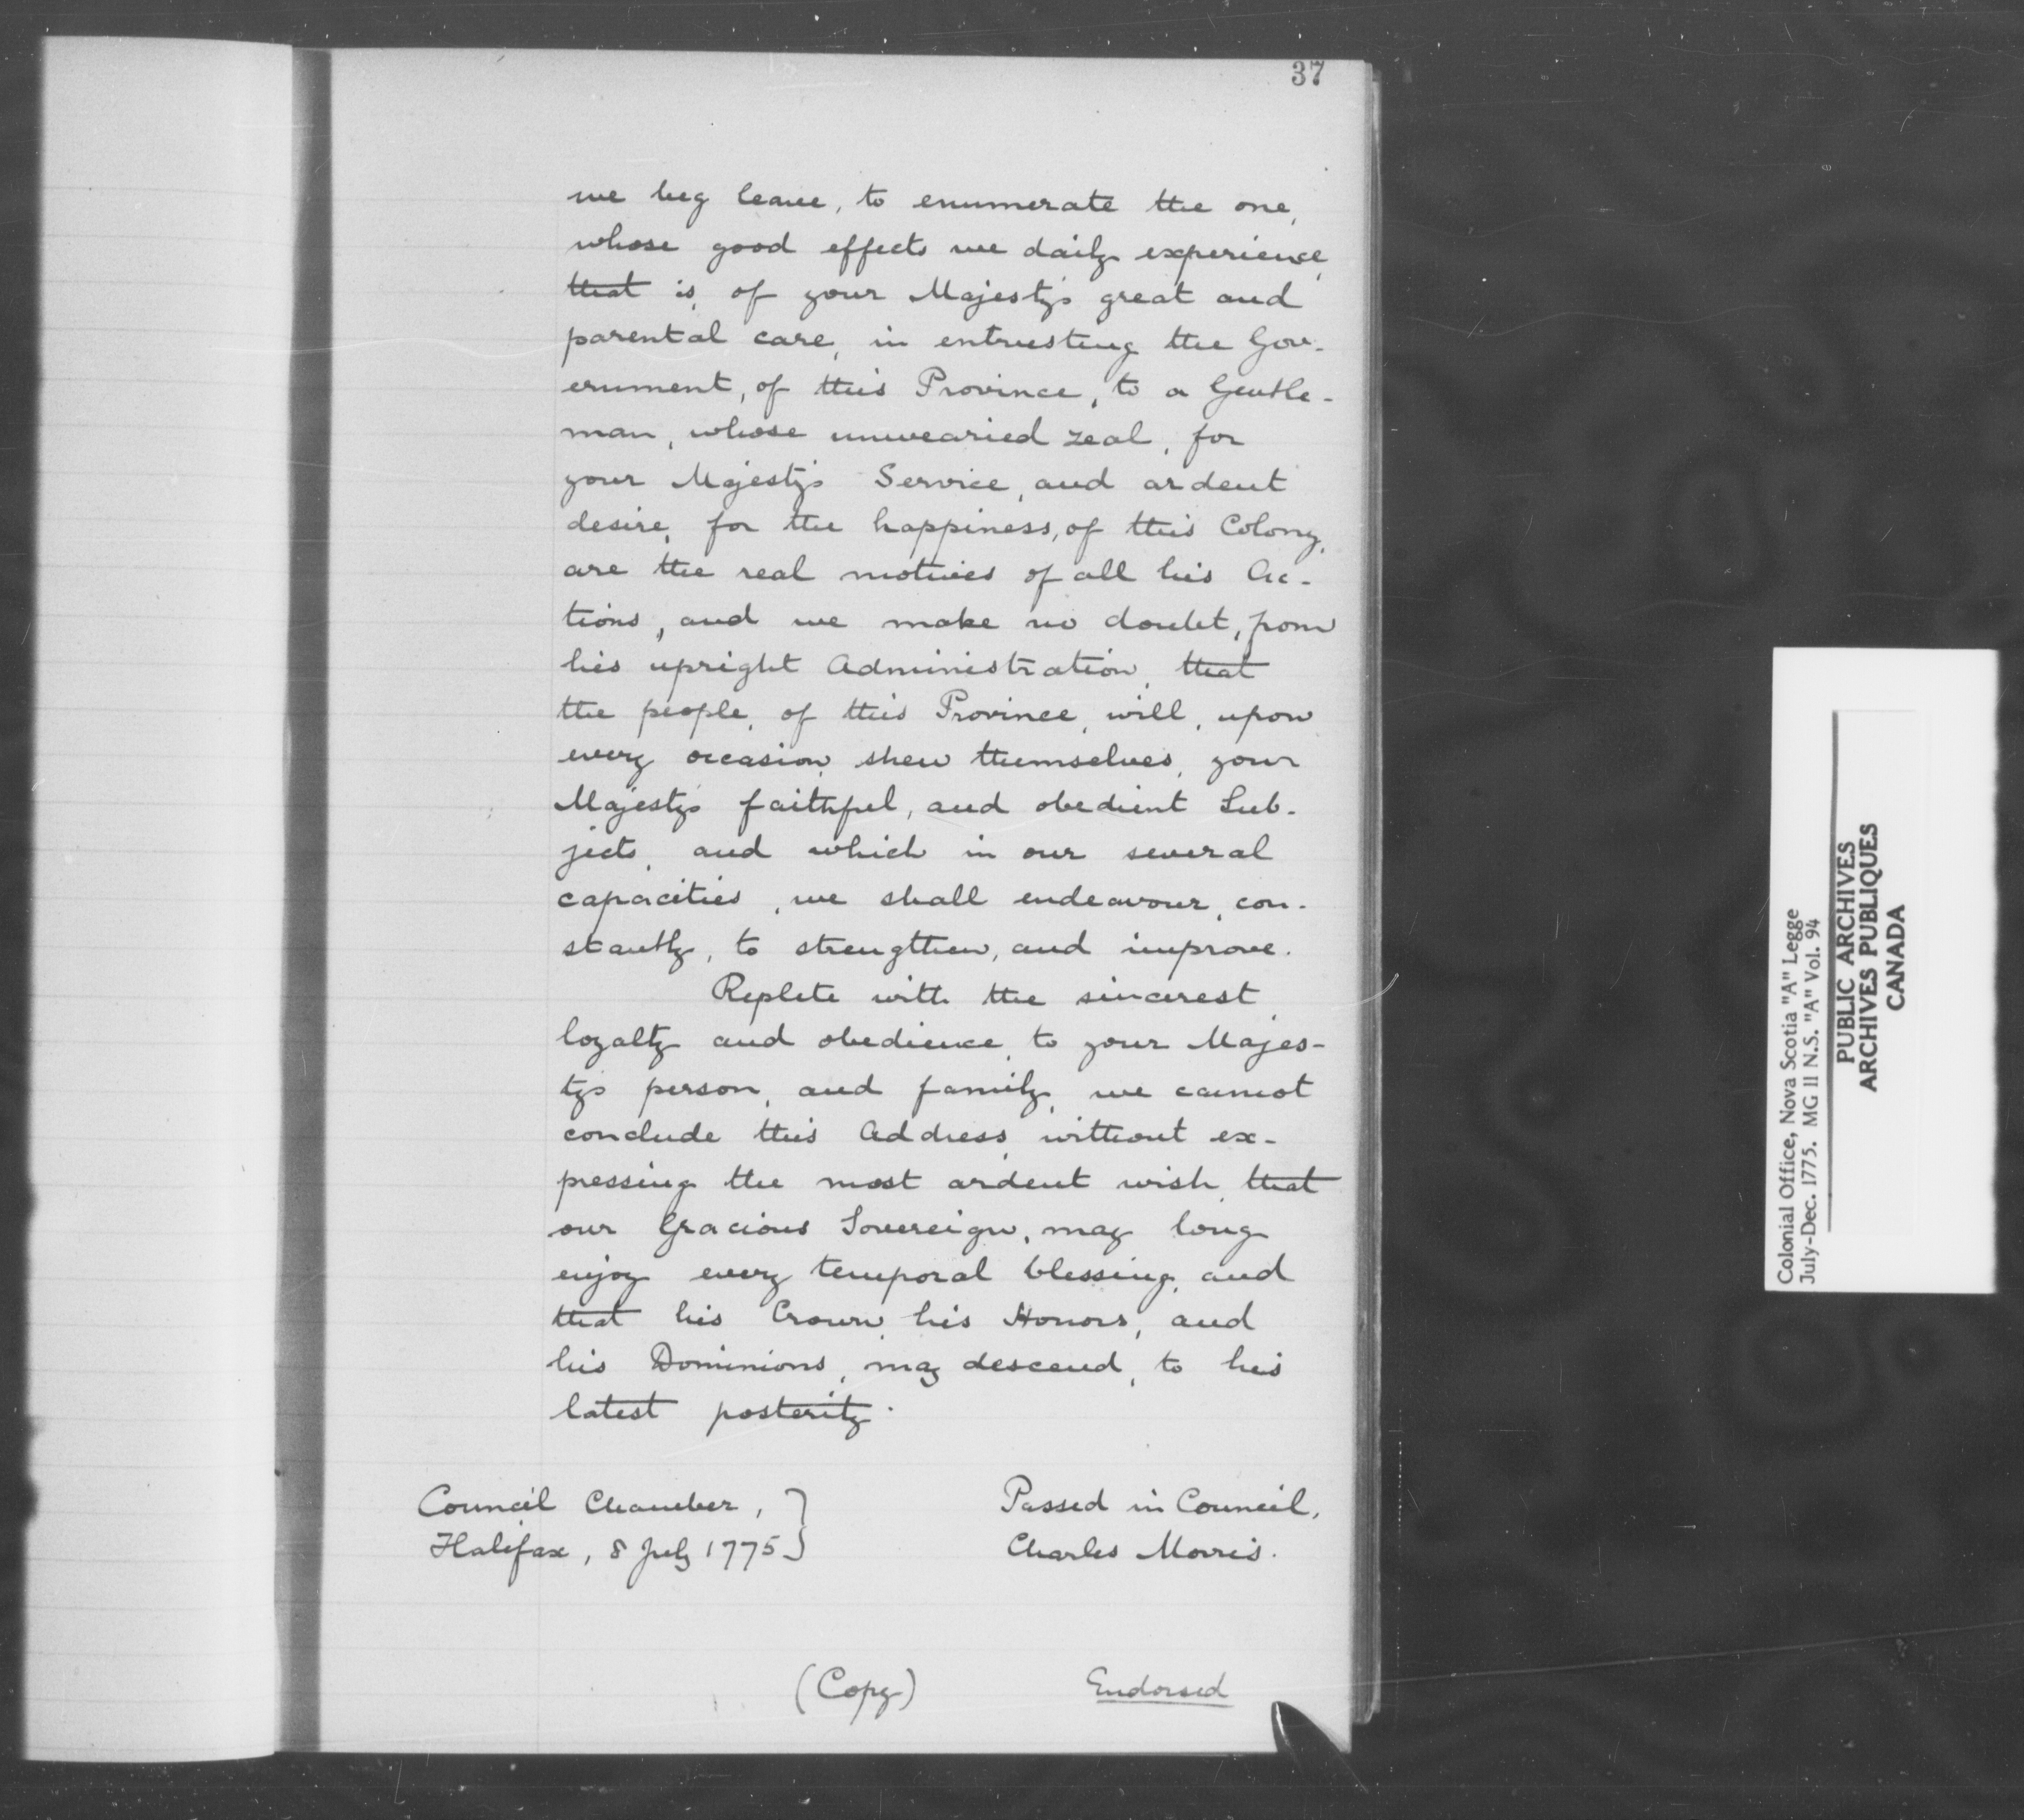 37
we beg leave, to enumerate the one,
whose good effects we daily experience,
that is, of your Majesty's great and
parental care, in entrusting the Gov-
ernment, of this Province, to a Gentle-
man, whose unwearied zeal, for
your Majesty's Service, and ardent
desire, for the happiness, of this Colony,
are the real motives of all his Ac-
tions, and we make no doubt, from
his upright Administration, that
the people, of this Province, will, upon
every occasion, shew themselves, your
Majesty's faithful, and obedient Sub-
jects, and which in our several
capacities, we shall endeavour, con-
stantly, to strengthen, and improve.
Replete with the sincerest
loyalty and obedience, to your Majes-
ty's person, and family, we cannot
conclude this Address, without ex-
pressing the most ardent wish, that
our Gracious Sovereign, may long
enjoy every temporal blessing, and
that his Crown, his Honors, and
his Dominions, may descend, to his
latest posterity.
Council Chamber, }
Halifax, 8 July 1775 }
Passed in Council,
Charles Morris.
(Copy)
Endorsed
Colonial Office, Nova Scotia "A" Legge
July-Dec. 1775. MG II N.S. "A" Vol. 94
PUBLIC ARCHIVES
ARCHIVES PUBLIQUES
CANADA